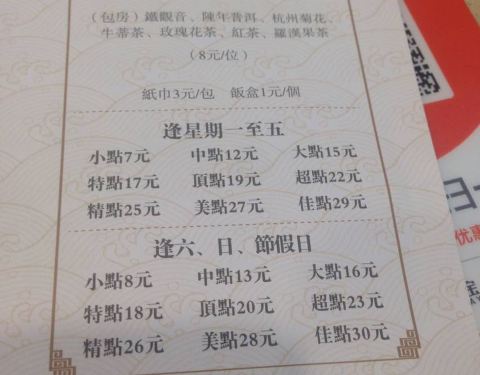 (包房)鐵觀音、陳年普洱、杭州菊花、
牛蒂茶、玫瑰花茶、紅茶、羅漢果茶
(8元/位)
紙巾3元/包 飯盒1元/個
逢星期一至五
小點7元 中點12元 大點15元
特點17元 頂點19元 超點22元
精點25元 美點27元 佳點29元
逢六、日、節假日
小點8元 中點13元 大點16元
特點18元 頂點20元 超點23元
精點26元 美點28元 佳點30元
优惠